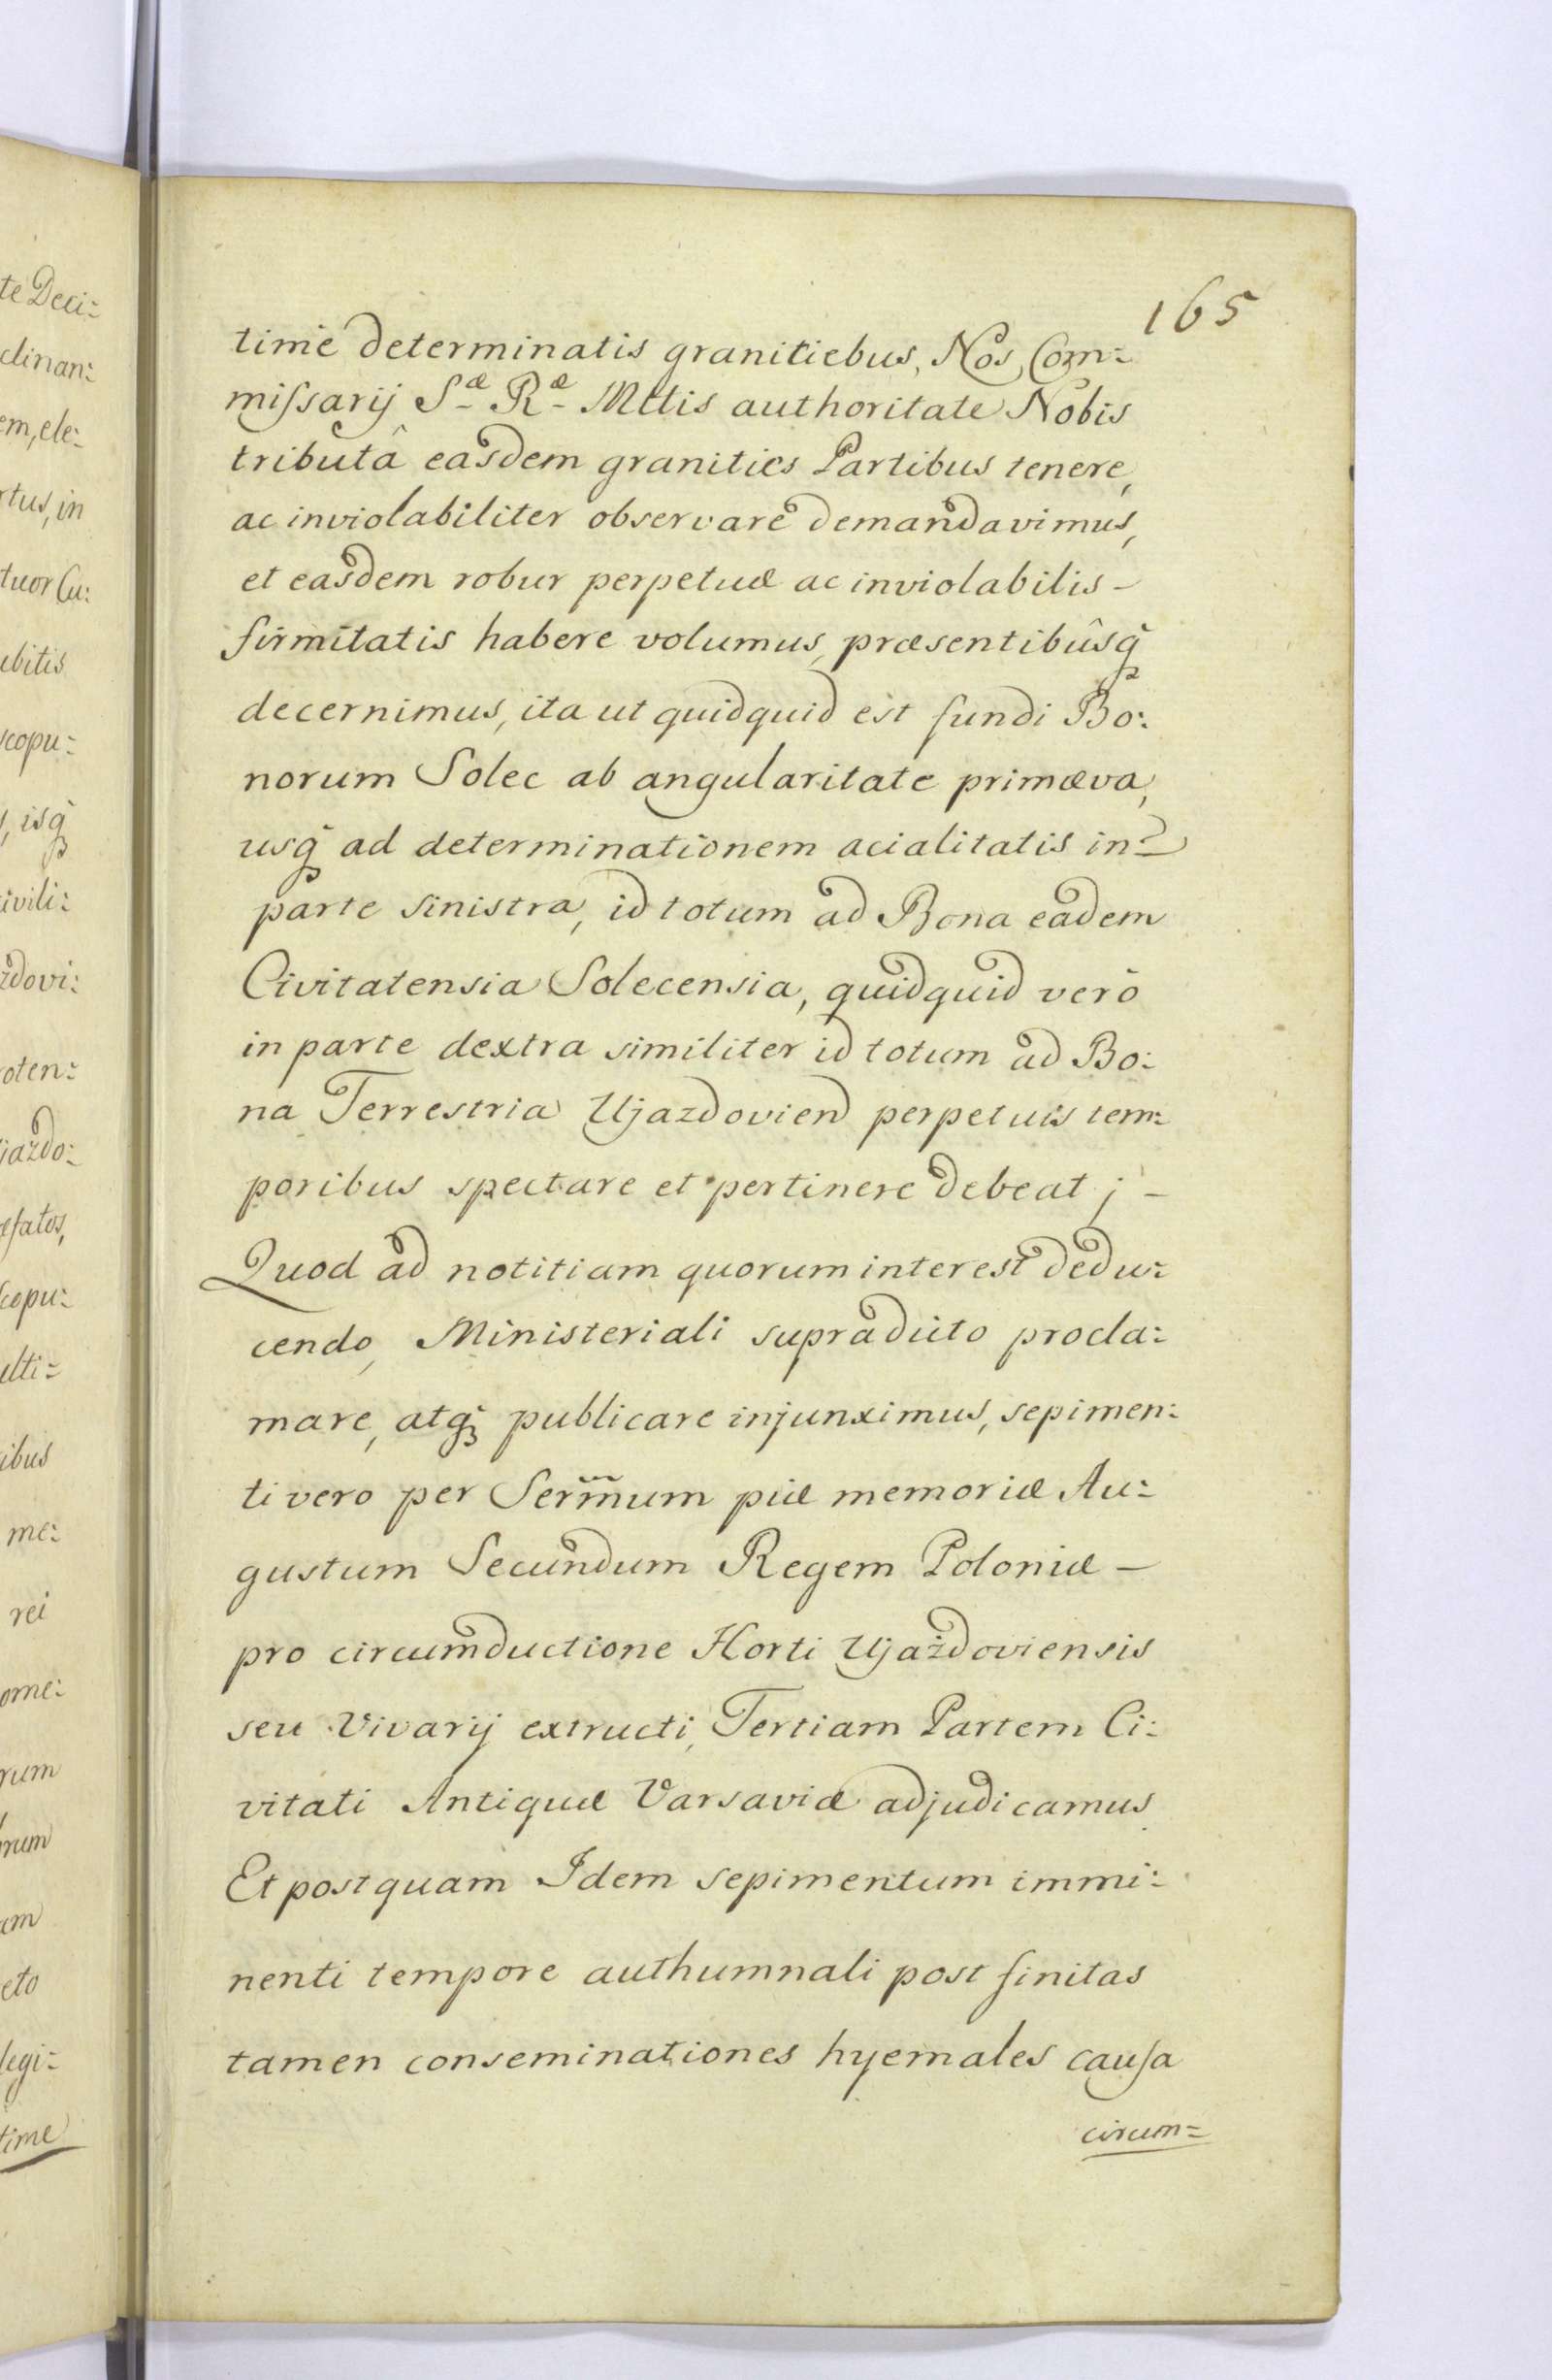 165
time determinatis granitiebus, Nos Com:
missarij Sæ Ræ Mttis authoritate Nobis
tributâ easdem granities Partibus tenere,
ac inviolabiliter observare demandavimus,
et easdem robur perpetuæ ac inviolabilis -
firmitatis habere volumus, præsentibûsq̃
decernimus, ita ut quidquid est fundi Bo:
norum Solec ab angularitate primæva,
usq̃ ad determinationem acialitatis in -
parte sinistra, id totum ad Bona eadem
Civitatensia Solecensia, quidquid verò
in parte dextra similiter id totum ad Bo:
na Terrestria Ujazdovien perpetuis tem:
poribus spectare et pertinere debeat ; -
Quod ad notitiam quorum interest dedu:
cendo, Ministeriali supradicto procla:
mare, atq̃ publicare injunximus, sepimen:
ti vero per Serm̃um piæ memoriæ Au:
gustum Secundum Regem Poloniæ -
pro circumductione Horti Ujażdoviensis
seu Vivarij extructi, Tertiam Partem Ci:
vitati Antiquæ Varsaviæ adjudicamus.
Et postquam Idem sepimentum immi:
nenti tempore authumnali post finitas
tamen conseminationes hyemales causa
circum=
te Deci:
clinan:
em, ele:
rtus, in
tuor Cu:
ebitis
scopu:
s, isq̃
ivili:
zdovi:
oten:
jazdo:
efatos,
copu:
ulti:
ibus
me:
rei
ome:
rum
rum
um
cto
legi:
time